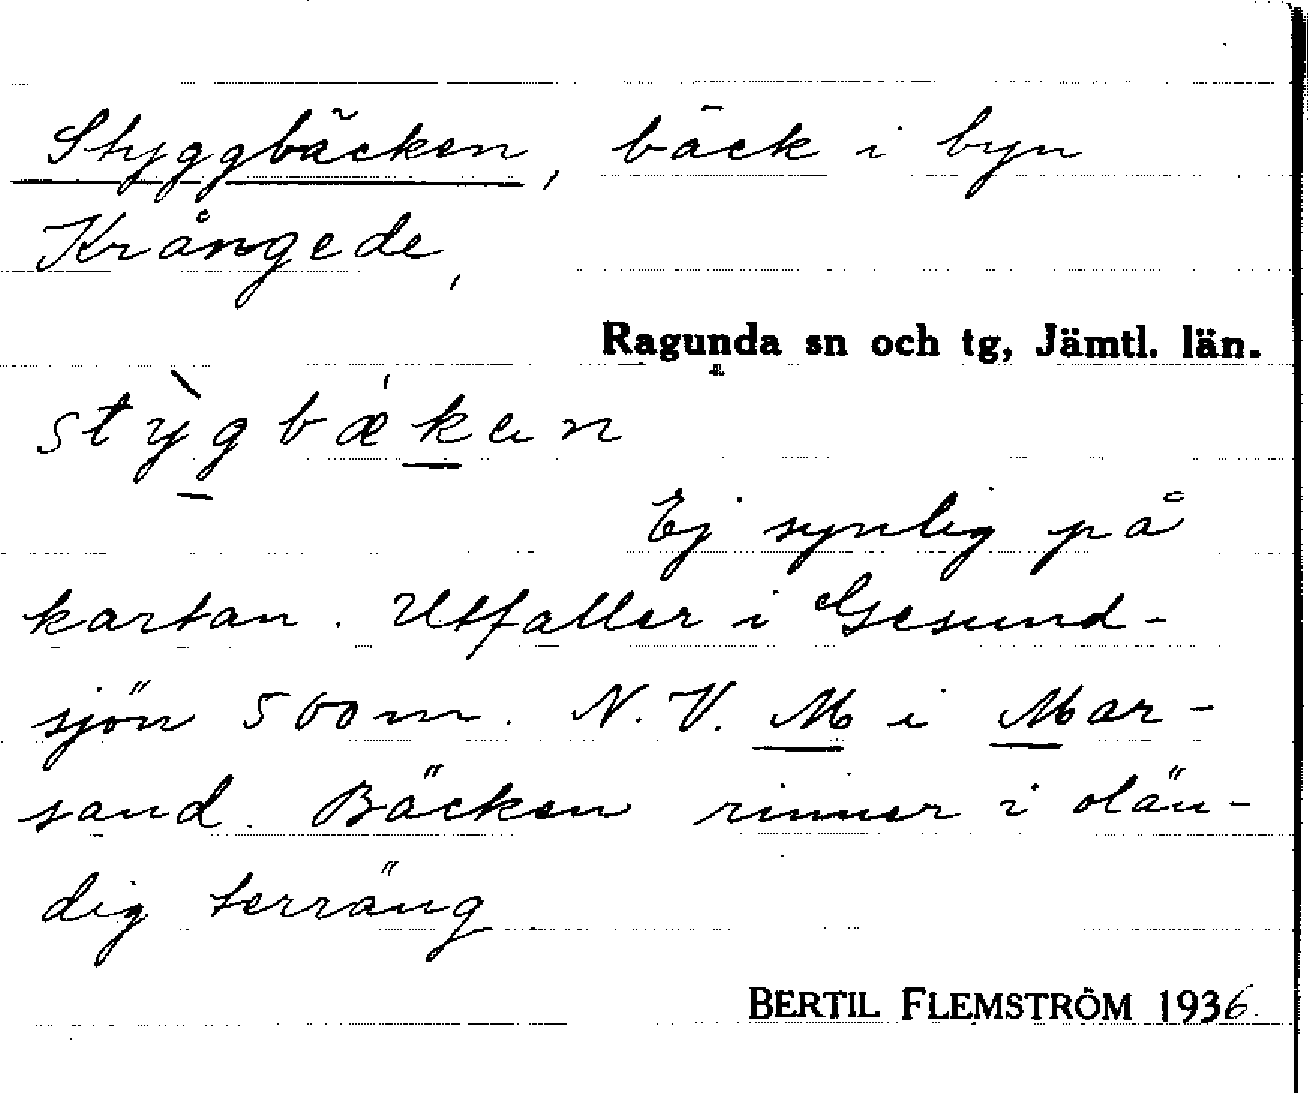 Styggbäcken, bäck i byn
Krångede,
Ragunda sn och tg, Jämtl. län.
stỳgbǽkan
Ej synlig på
kartan. Utfaller i Gesund-
sjön 500 m. N.V. M i Mar-
sand. Bäcken rinner i olän-
dig terräng
BERTIL FLEMSTRÖM 1936.